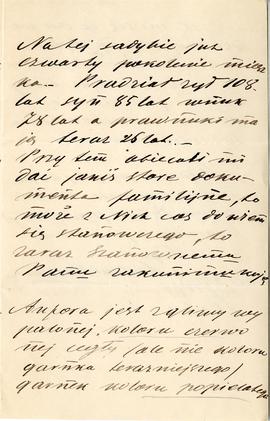 Na tej sadybie już
czwarty pokolenie miesz
ka. — Pradziat żył 108.
lat syn 85 lat wnuk
78 lat a prawnuk ma
ją teraz 25 lat. —
Przy tem obiecali mi
dać jakiś stare doku-
menta familijne, to
może z Nich coś dowiem
się stanowczego, to
zaraz Szanownemu
Panu zakomunikuję
jest z gliny wy
palonej, koloru czerwo
nej cegły (ale nie koloru
garnka teraźniejszego)
garnek koloru popielatego